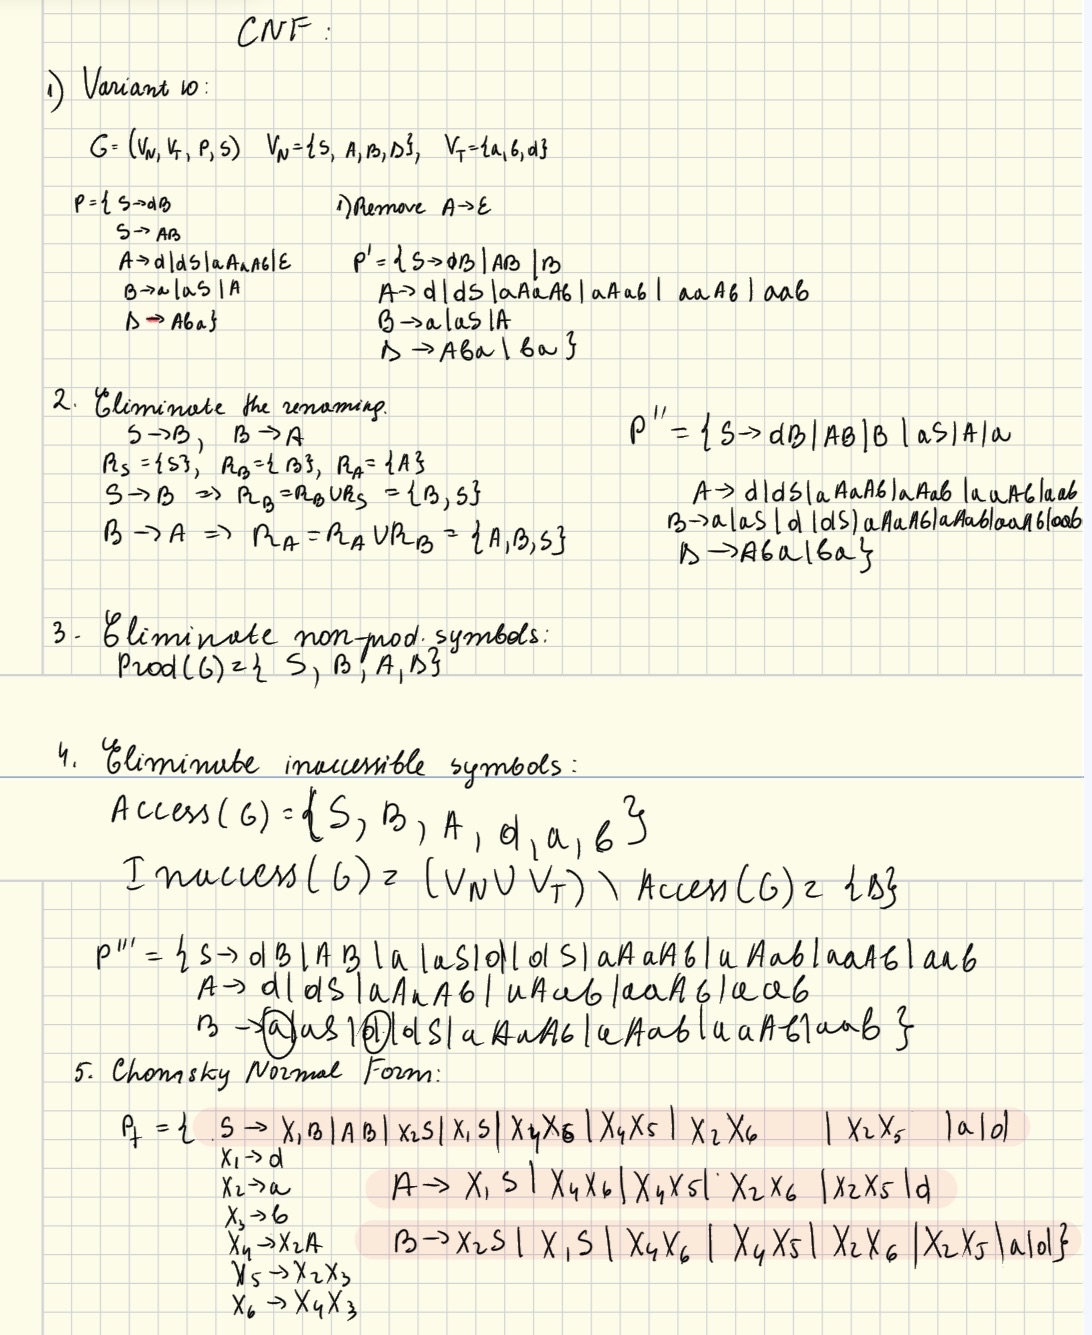 CNF:
1) Variant 10:
G=(V_N, V_T, P, S) V_N={S, A, B, D}, V_T={a, b, d}
P={ S→dB
S→AB
A→d|dS|aAaAb|ε
B→a|aS|A
D→Aba}
1) Remove A→ε
P'={S→dB|AB|B
A→d|dS|aAaAb|aAab|aaAb|aab
B→a|aS|A
D→Aba|ba}
2. Eliminate the renaming.
S→B, B→A
R_S={S}, R_B={B}, R_A={A}
S→B ⇒ R_B=R_B∪R_S={B,S}
B→A ⇒ R_A=R_A∪R_B={A,B,S}
P''={S→dB|AB|B|aS|A|a
A→d|dS|aAaAb|aAab|aaAb|aab
B→a|aS|d|dS|aAaAb|aAab|aaAb|aab
D→Aba|ba}
3. Eliminate non-prod. symbols:
Prod(G)={ S, B, A, D}
4. Eliminate inaccessible symbols:
Access(G)={S, B, A, d, a, b}
Inaccess(G)=(V_N∪V_T)\Access(G)={D}
P'''={S→dB|AB|a|aS|d|dS|aAaAb|aAab|aaAb|aab
A→d|dS|aAaAb|aAab|aaAb|aab
B→a|aS|d|dS|aAaAb|aAab|aaAb|aab}
5. Chomsky Normal Form:
P_f={ S→X₁B|AB|X₂S|X₁S|X₄X₆|X₄X₅|X₂X₆ |X₂X₅ |a|d
X₁→d
X₂→a A→X₁S|X₄X₆|X₄X₅|X₂X₆|X₂X₅|d
X₃→b
X₄→X₂A B→X₂S|X₁S|X₄X₆|X₄X₅|X₂X₆|X₂X₅|a|d}
X₅→X₂X₃
X₆→X₄X₃